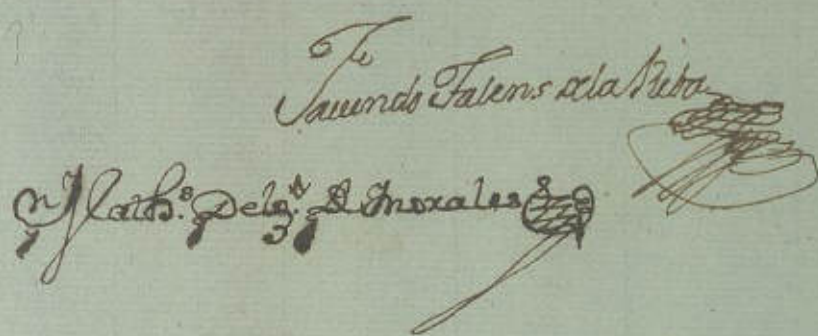 Fr
Facundo Falens de la Riba
Math.s Delg.do D Morales